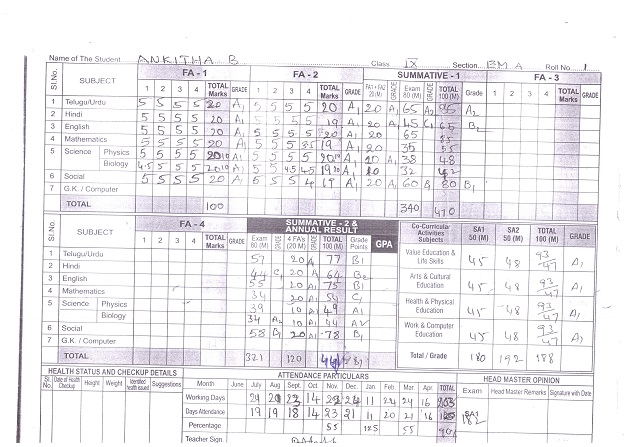 Name of The Student ANKITHA B Class IX Section E.M. A Roll No. 1
Sl.No. SUBJECT FA - 1 FA - 2 FA1 + FA2 20 (M) GRADE SUMMATIVE - 1 FA - 3
1 2 3 4 TOTAL Marks GRADE 1 2 3 4 TOTAL Marks GRADE Exam 80 (M) GRADE TOTAL 100 (M) Grade 1 2 3 4 TOTAL Marks GRADE
1 Telugu/Urdu 5 5 5 5 20 A1 5 5 5 5 20 A1 20 A1 65 A2 85 A2
2 Hindi 5 5 5 5 20 A1 5 5 5 5 19 A1 20 A1 45 C1 65 B2
3 English 5 5 5 5 20 A1 5 5 5 5 20 A1 20 65
4 Mathematics 5 5 5 5 20 5 5 5 19 A1 20 35 55
5 Science Physics 5 5 5 5 20 5 5 5 5 A1 10 A1 38 48
Biology 4.5 5 5 5 5 5 4.5 4.5 10 32 42
6 Social 5 5 5 5 20 A1 5 5 5 4 19 A1 20 A1 60 B1 80 B1
7 G.K. / Computer
TOTAL 100 340
SI.No. SUBJECT FA - 4 SUMMATIVE - 2 & ANNUAL RESULT
1 2 3 4 TOTAL Marks GRADE Exam 80 (M) GRADE 4 FA's (20 M) GRADE TOTAL 100 (M) Grade Points GPA
1 Telugu/Urdu 57 20 A 77 B1
2 Hindi 44 C1 20 A 64 B2
3 English 55 20 A1 75 B1
4 Mathematics 34 20 A1 54 C1
5 Science Physics 39 10 A1 49 A1
Biology 34 A2 10 A1 44
6 Social 58 B1 20 A1 78 B1
7 G.K. / Computer
TOTAL 321 120
Co-Curricular Activities Subjects SA1 50 (M) SA2 50 (M) TOTAL 100 (M) GRADE
Value Education & Life Skills 45 48 93/47 A1
Arts & Cultural Education 45 48 93/47 A1
Health & Physical Education 45 48 93/47 A1
Work & Computer Education 45 48 93/47 A1
Total / Grade 180 192 188
HEALTH STATUS AND CHECKUP DETAILS
Sl. No. Date of Health Checkup Height Weight Identified health issued Suggestions
ATTENDANCE PARTICULARS
Month June July Aug Sept. Oct. Nov. Dec. Jan Feb Mar Apr. TOTAL
Working Days 24 20 23 14 24 11 24 24 16
Days Attendance 19 19 18 14 23 21 11 20 21 16
Percentage 55 125 55
Teacher Sign.
HEAD MASTER OPINION
Exam Head Master Remarks Signature with Date
SA1
182